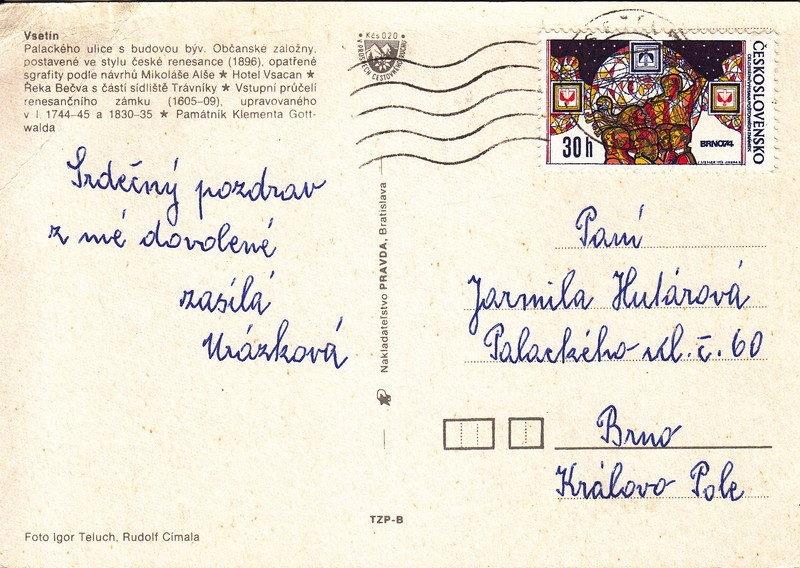 Vsetín
Palackého ulice s budovou býv. Občanské záložny,
postavené ve stylu české renesance (1896), opatřené
sgrafity podle návrhů Mikoláše Alše ★ Hotel Vsacan ★
Řeka Bečva s částí sídliště Trávníky ★ Vstupní průčelí
renesančního zámku (1605–09), upravovaného
v l 1744–45 a 1830–35 ★ Památník Klementa Gott-
walda
Kčs 0.20
ČESKOSLOVENSKO
BRNO74
30h
Srdečný pozdrav
z mé dovolené
zasílá
Urázková
Nakladateľstvo PRAVDA, Bratislava
Paní
Jarmila Hulárová
Palackého ul. č. 60
Brno
Královo Pole
TZP-B
Foto Igor Teluch, Rudolf Címala